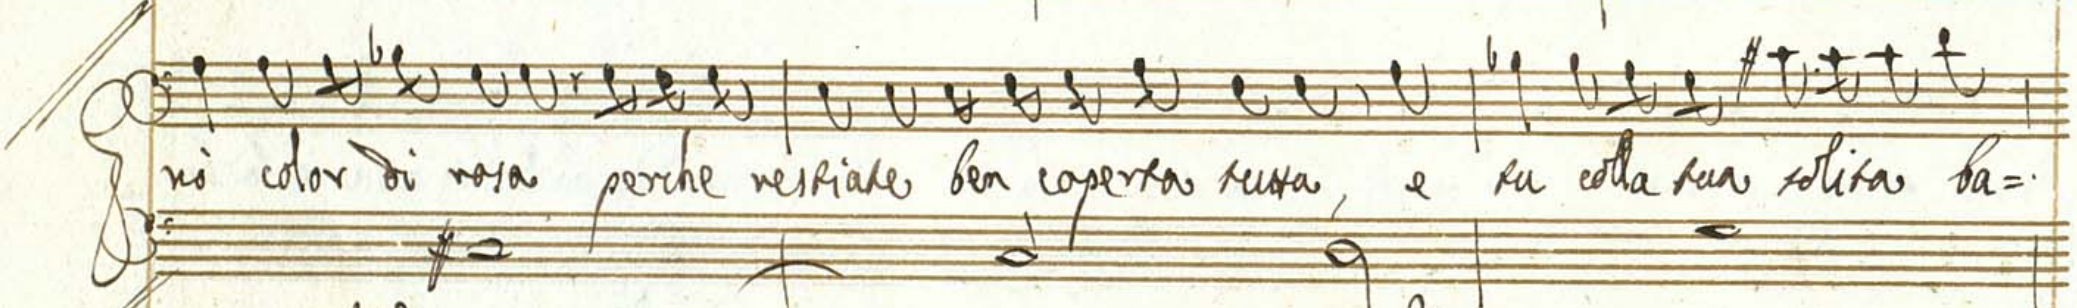 nò color di rosa perche restiate ben coperta tutta, e tu colla tua solita ba=